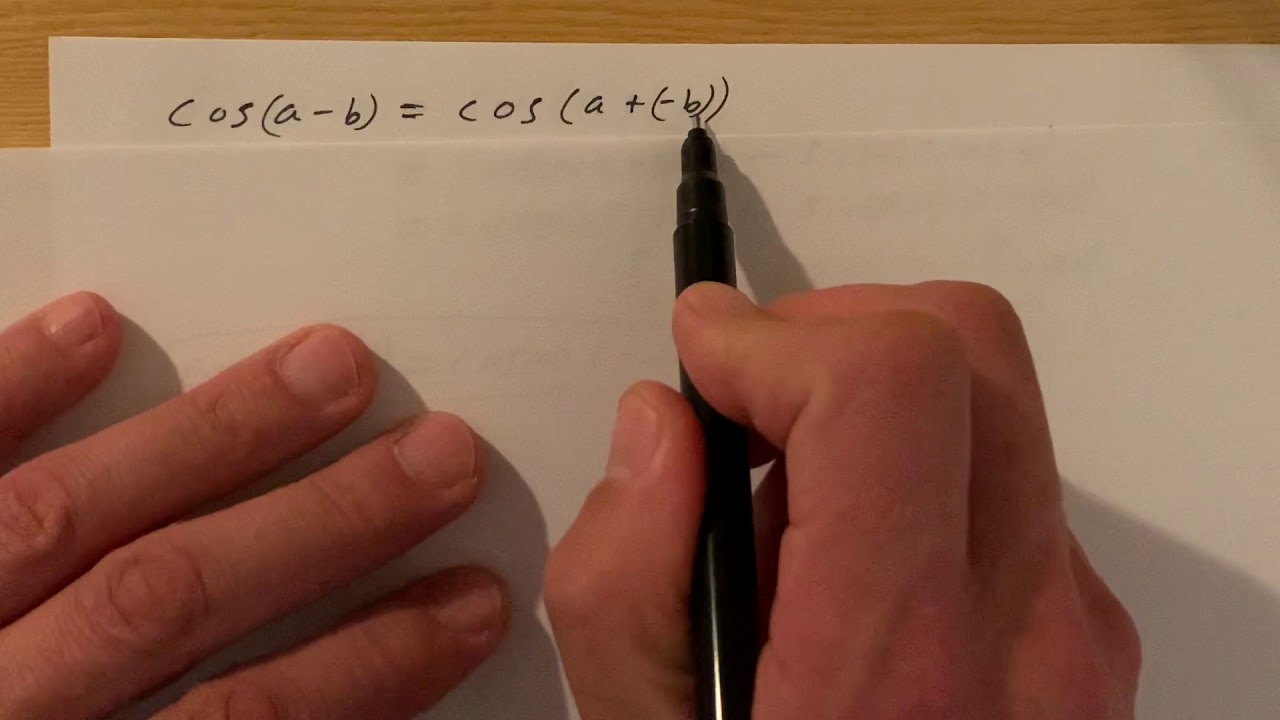 cos(a-b) = cos(a+(-b))